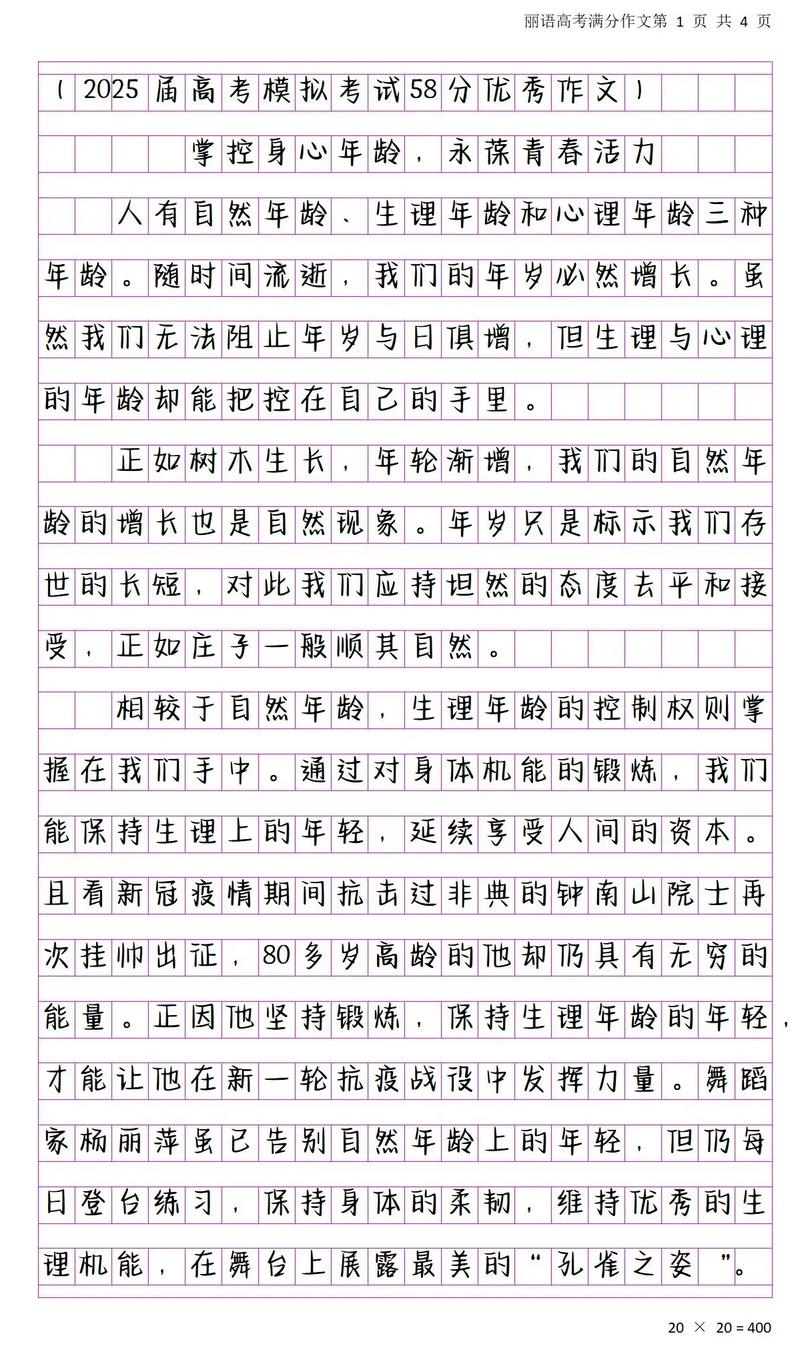 丽语高考满分作文第 1 页 共 4 页
(2025届高考模拟考试58分优秀作文)
掌控身心年龄，永葆青春活力
人有自然年龄、生理年龄和心理年龄三种
年龄。随时间流逝，我们的年岁必然增长。虽
然我们无法阻止年岁与日俱增，但生理与心理
的年龄却能把控在自己的手里。
正如树木生长，年轮渐增，我们的自然年
龄的增长也是自然现象。年岁只是标示我们存
世的长短，对此我们应持坦然的态度去平和接
受，正如庄子一般顺其自然。
相较于自然年龄，生理年龄的控制权则掌
握在我们手中。通过对身体机能的锻炼，我们
能保持生理上的年轻，延续享受人间的资本。
且看新冠疫情期间抗击过非典的钟南山院士再
次挂帅出证，80多岁高龄的他却仍具有无穷的
能量。正因他坚持锻炼，保持生理年龄的年轻，
才能让他在新一轮抗疫战役中发挥力量。舞蹈
家杨丽萍虽已告别自然年龄上的年轻，但仍每
日登台练习，保持身体的柔韧，维持优秀的生
理机能，在舞台上展露最美的“孔雀之姿”。
20 × 20 = 400